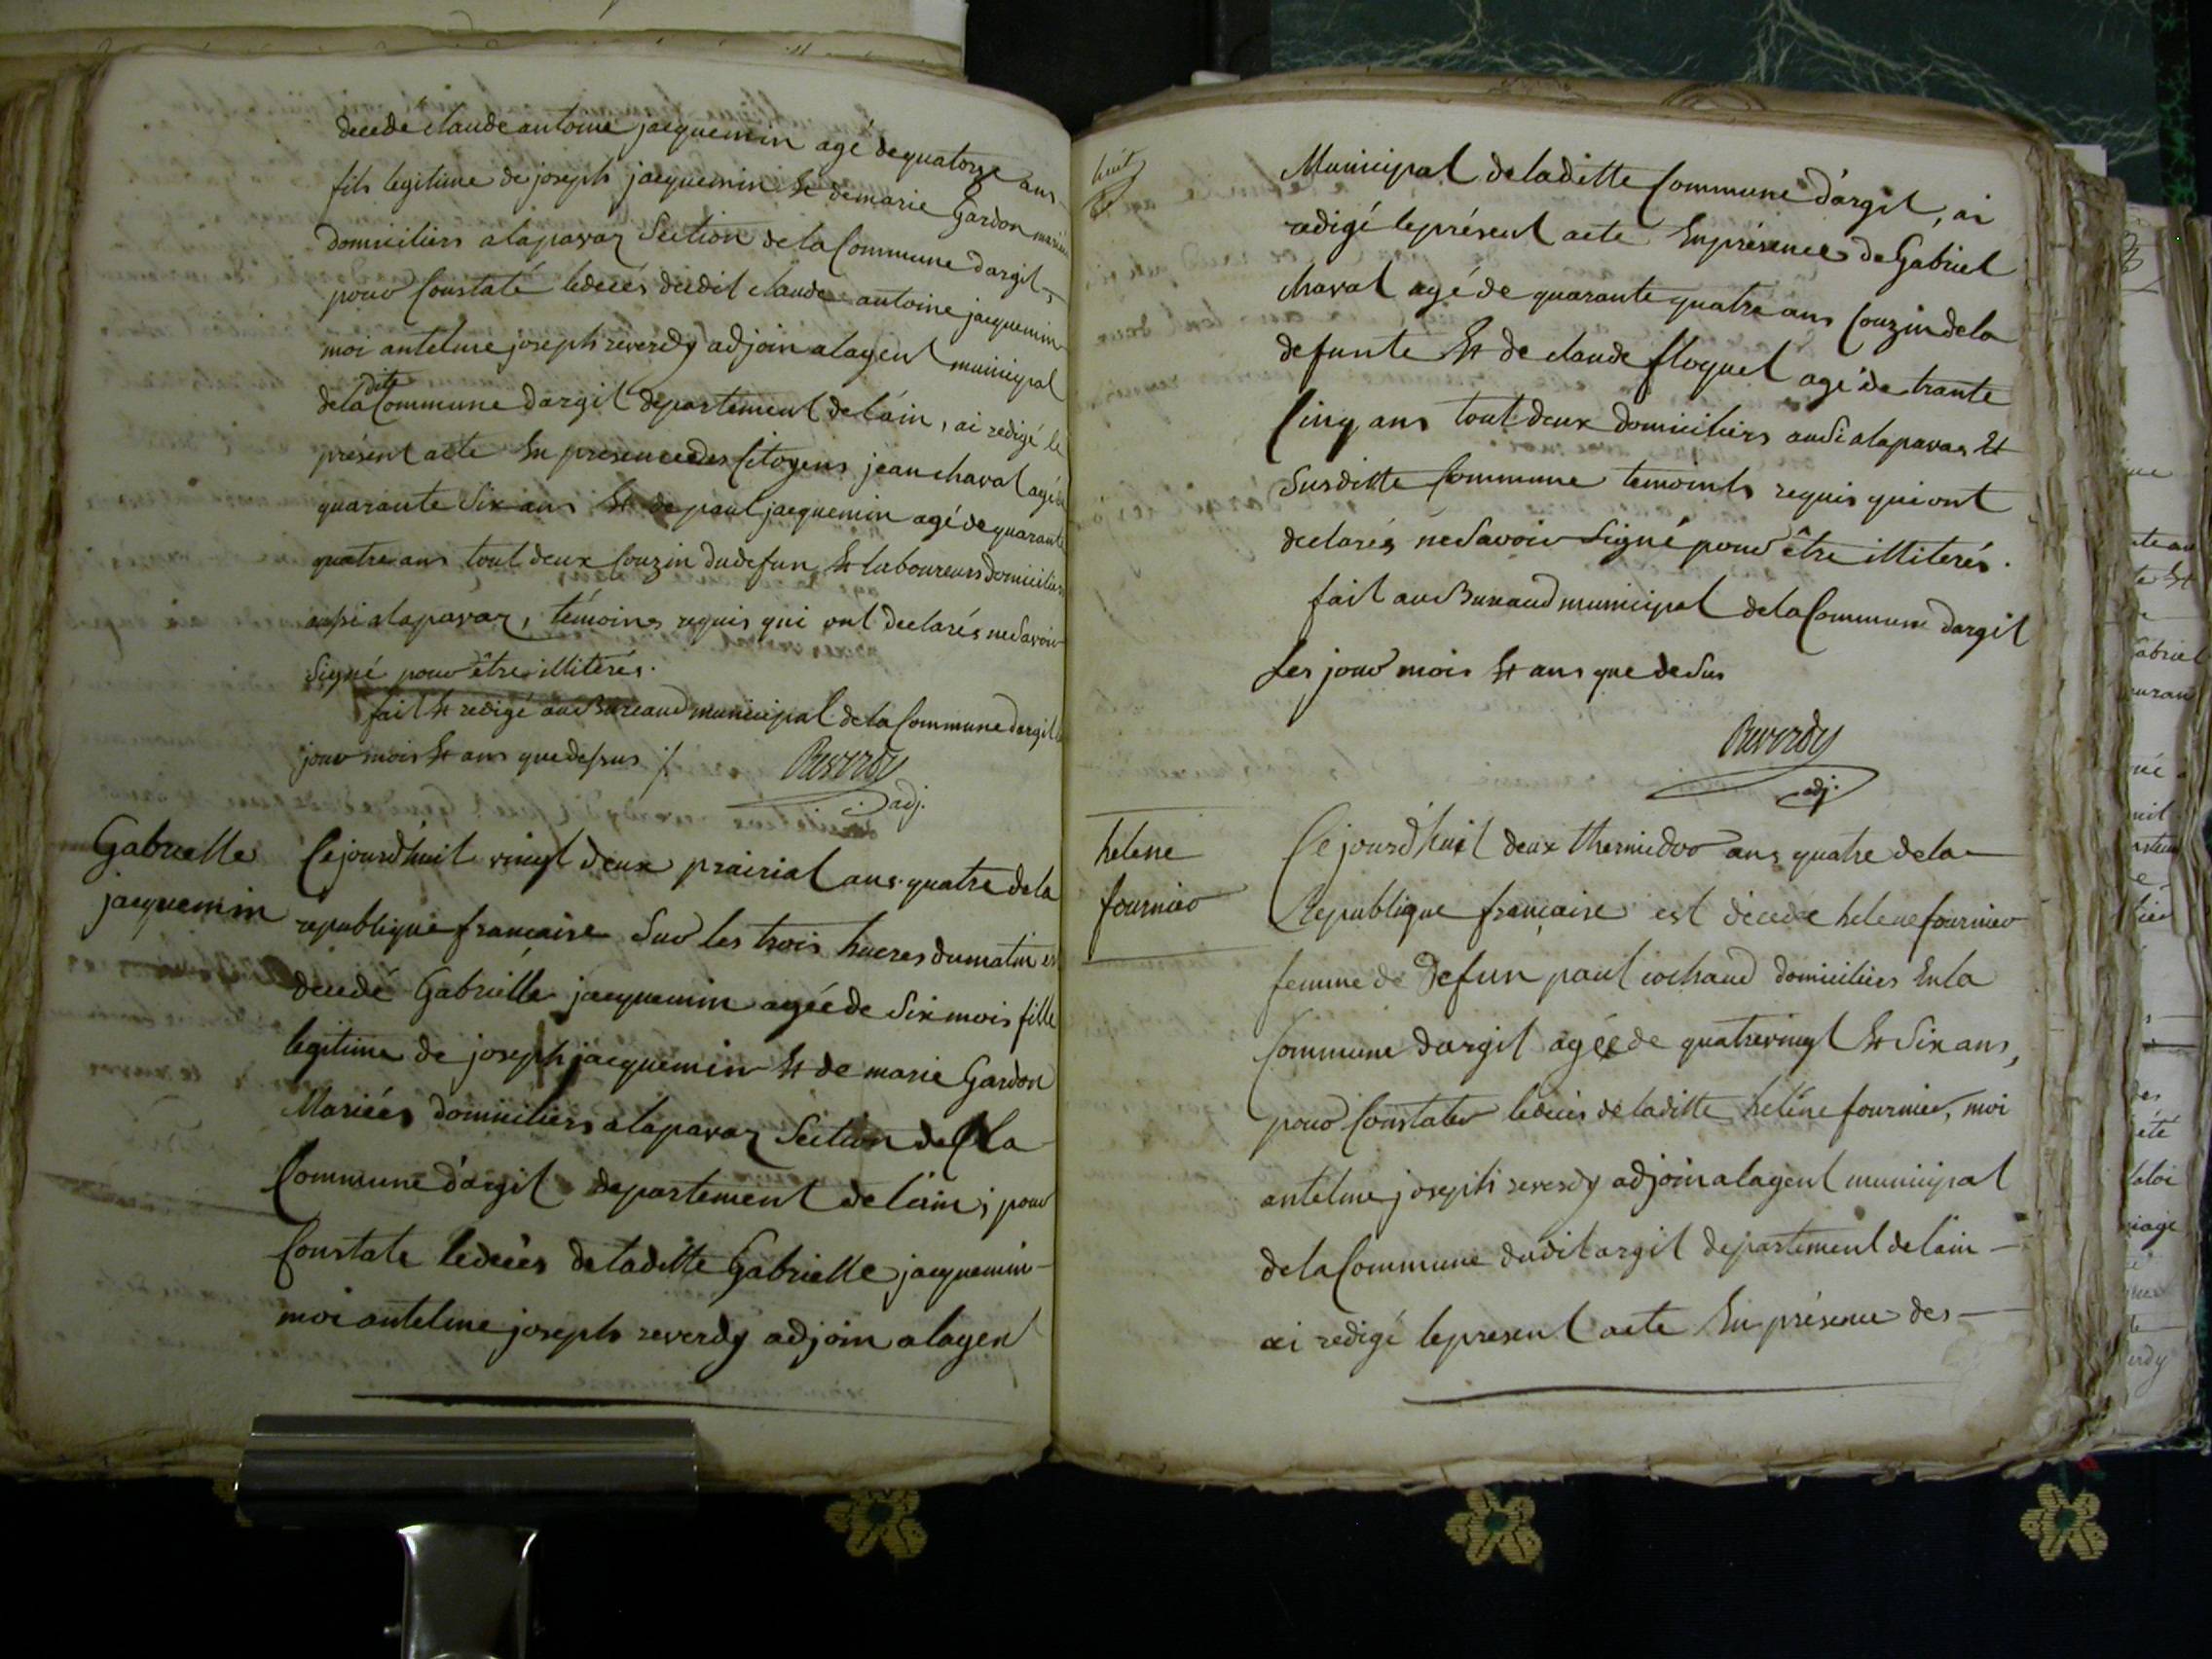 decedé claude antoine jacquemin agé de quatorze ans
fils legitime de joseph jacquemin Et de marie Gardon mariés
domiciliers a laparaz Section de la Commune dargit
pour Constaté ledeces dudit claude antoine jacquemin
moi antelme joseph reverdy adjoin alagent municipal
dela dite Commune dargit departement de lain, ai redigé le
présent acte En presence des Citoyens jean chaval agé de
quarante Six ans Et de paul jacquemin agé de quarante
quatre ans tout deux Couzin du defun Et laboureurs domiciliers
aussi alaparaz, témoins requis qui ont declarés ne Savoir
Signé pour être illiterés.
fait Et redigé au Bureaud municipal de la Commune dargit
jour mois Et ans que dessus
Reverdy
adj.
Gabrielle
jacquemin
Cejourdhuit vingt deux prairial ans quatre dela
republique francaise Sur les trois hueres dumatin est
decedé Gabriélle jacquemin agée de Six mois fille
legitime de joseph jacquemin Et de marie Gardon
Mariées domiciliers alaparaz Section de la
Commune d'argit departement de lain; pour
Constate ledeces de laditte Gabrielle jacquemin
moi antelme joseph reverdy adjoin alagent
huit
Municipal deladitte Commune d'argit, ai
redigé leprésent acte Enprésence de Gabriel
chaval agé de quarante quatre ans Couzin dela
defunte Et de claude floquet agé de trante
Cinq ans tout deux domiciliers ausi alaparaz Et
Susditte Commune temoints requis qui ont
declarés ne Savoir Signé pour être illiterés.
fait au Bureaud municipal dela Commune dargit
Les jour mois Et ans que deSus
Reverdy
adj.
helene
fournier
Ce jourdhuit deux thermidor ans quatre dela
Republique française est decedé helene fournier
femme de Defun paul cochaud domiciliers En la
Commune dargit agée de quatrevingt Et Six ans,
pour Constater ledeces de laditte heléne fournier, moi
antelme joseph reverdy adjoin alagent municipal
dela Commune dudit argit departement de lain
ai redigé lepresent acte En présence des